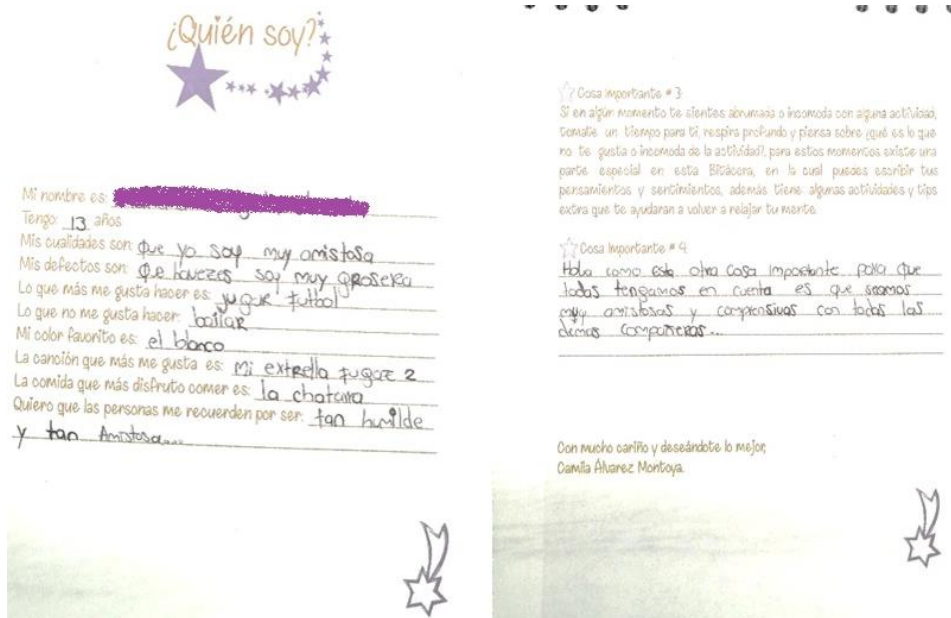 ¿Quién soy?
Mi nombre es:
Tengo: 13 años
Mis cualidades son: Que yo soy muy amistosa
Mis defectos son: Que havezes soy muy grosera
Lo que más me gusta hacer es: jugar futbol
Lo que no me gusta hacer: bailar
Mi color favorito es: el blanco
La canción que más me gusta es: Mi extrella fugaz 2
La comida que más disfruto comer es: la chatarra
Quiero que las personas me recuerden por ser: tan humilde
y tan Amistosa...
Cosa importante # 3
Si en algún momento te sientes abrumada o incomoda con alguna actividad,
tomate un tiempo para ti, respira profundo y piensa sobre ¿qué es lo que
no te gusta o incomoda de la actividad?, para estos momentos existe una
parte especial en esta Bitácora, en la cual puedes escribir tus
pensamientos y sentimientos, además tiene algunas actividades y tips
extra que te ayudaran a volver a relajar tu mente.
Cosa importante # 4
Hola como esta otra cosa importante para que
todas tengamos en cuenta es que seamos
muy amistosas y comprensivas con todas las
demas compañeras...
Con mucho cariño y deseándote lo mejor,
Camila Álvarez Montoya.